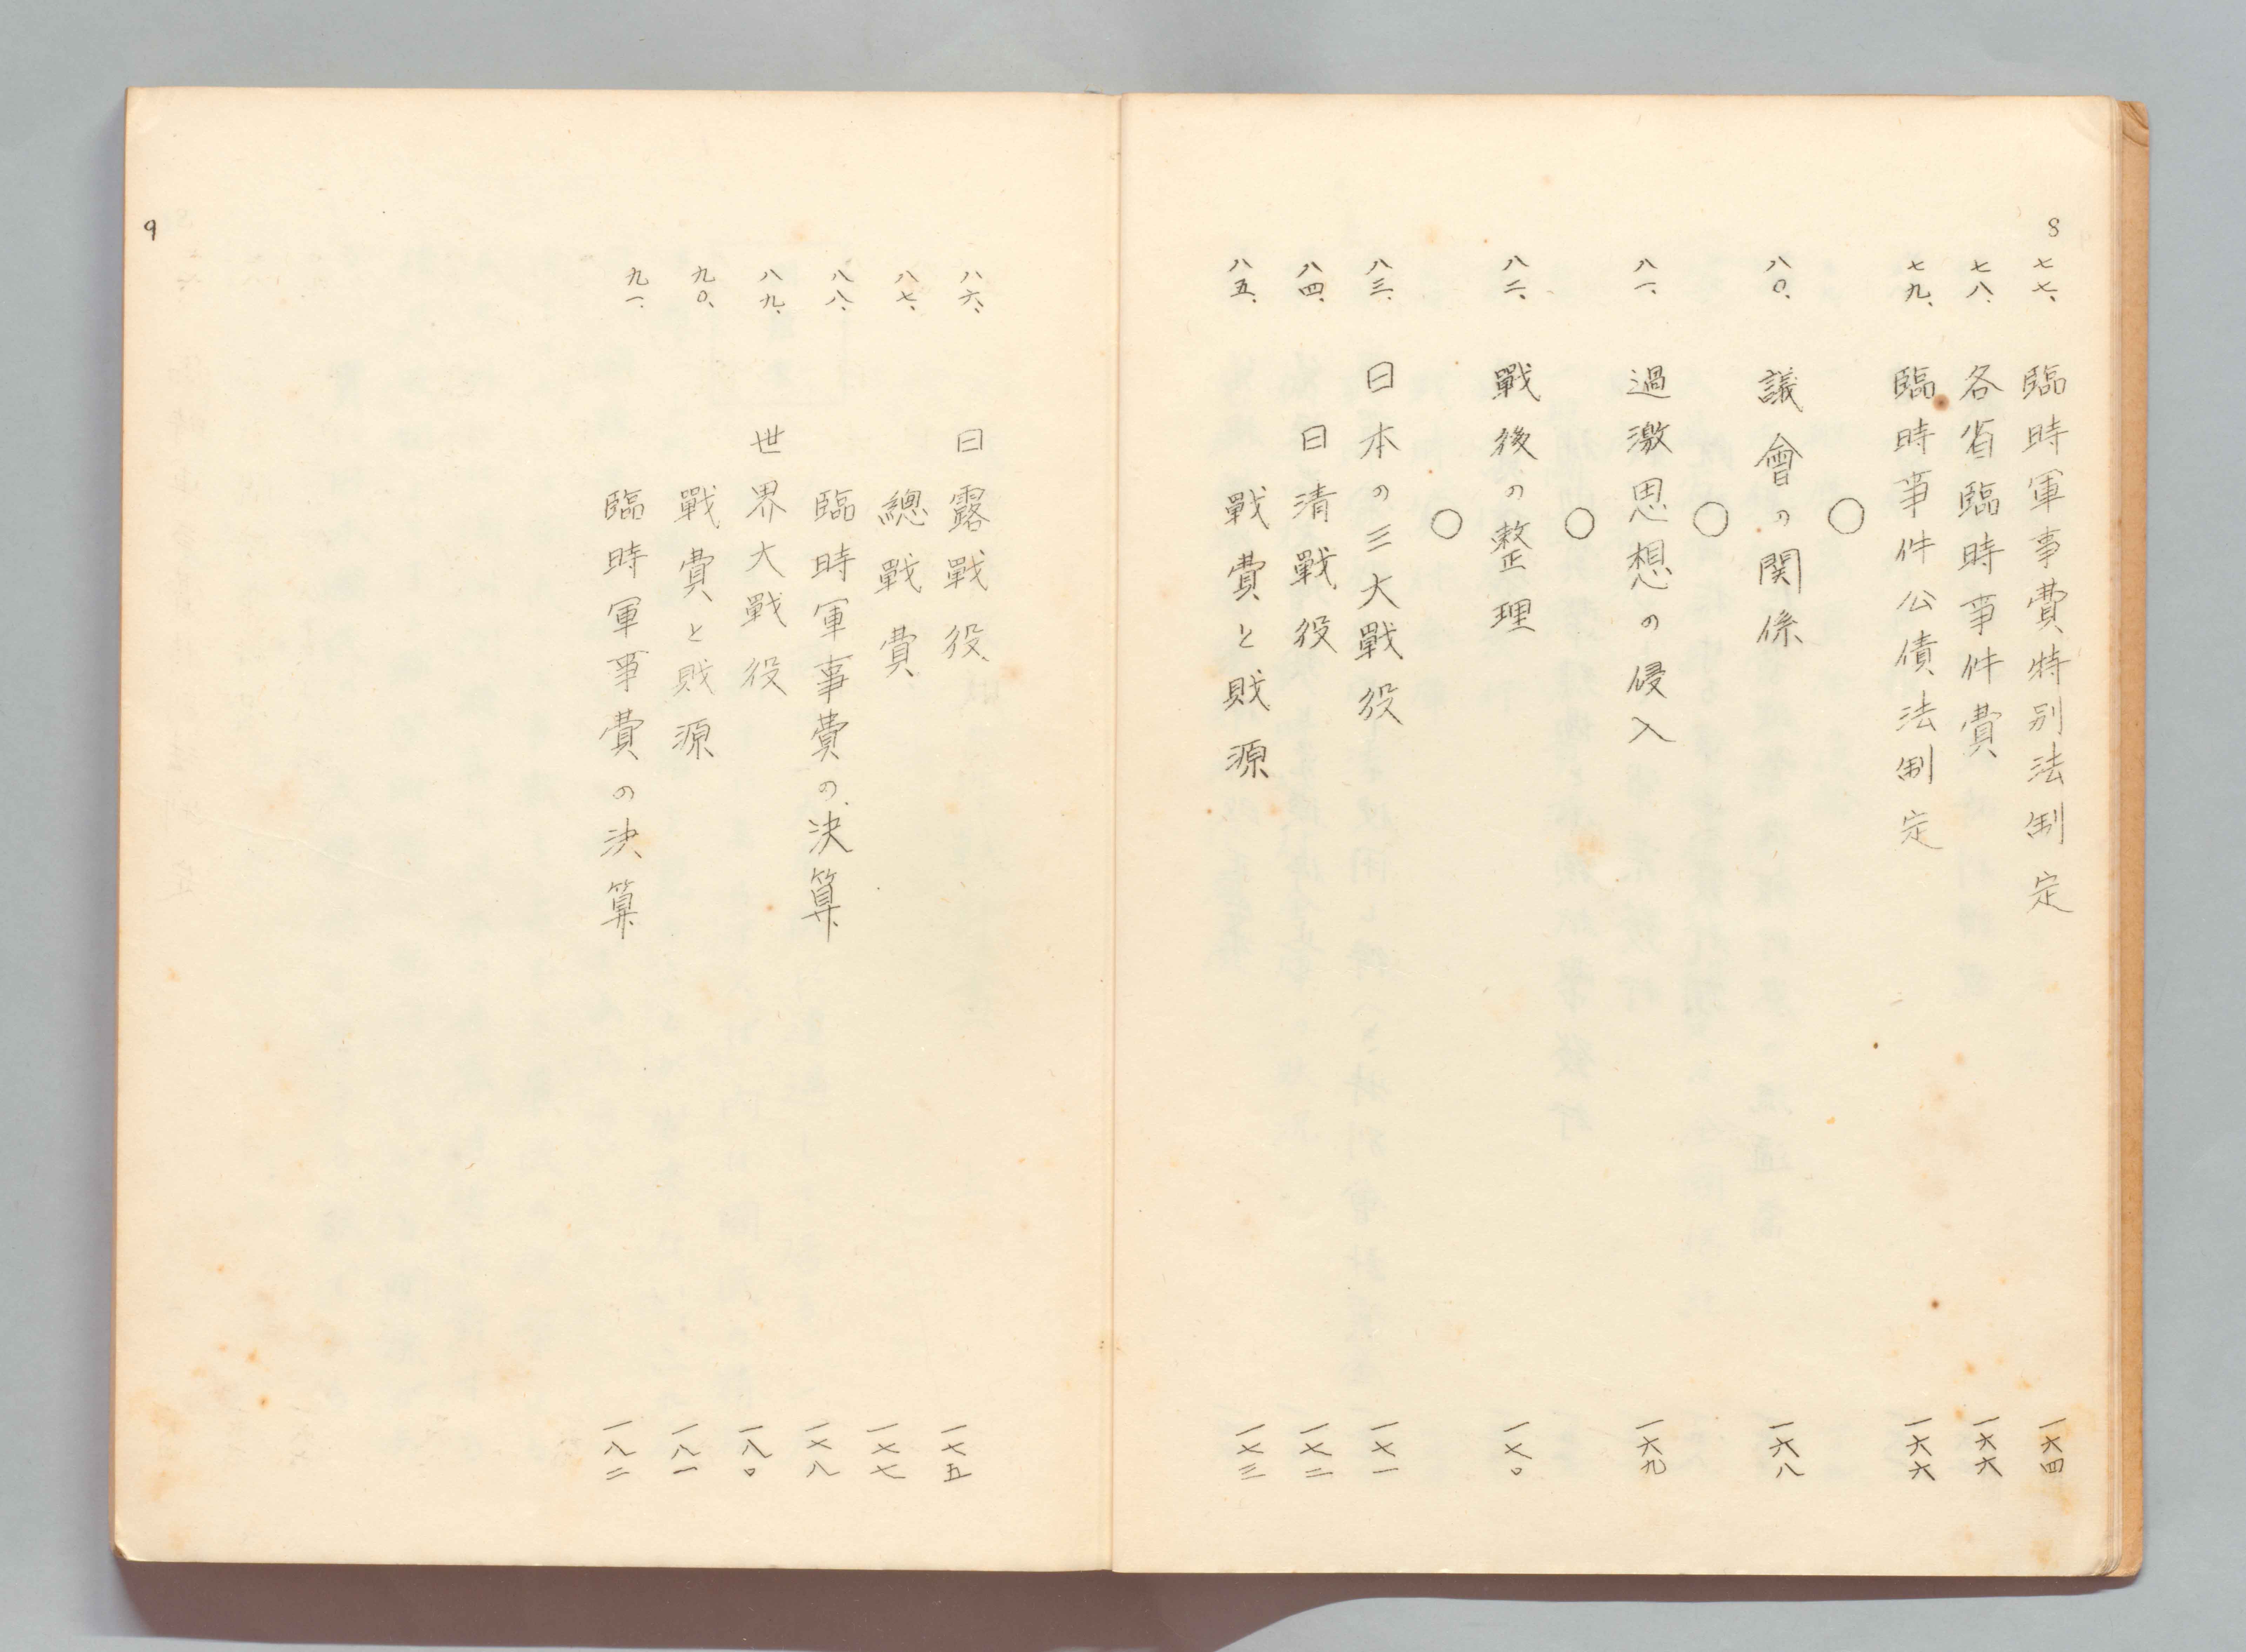 8
七七、臨時軍事費特別法制定 一六四
七八、各省臨時事件費 一六六
七九、臨時事件公債法制定 一六六
○
八〇、議會の関係 一六八
○
八一、過激思想の侵入 一六九
○
八二、戰後の整理 一七〇
○
八三、日本の三大戰役 一七一
八四、日清戰役 一七二
八五、戰費と財源 一七三
八六、日露戰役 一七五
八七、總戰費 一七七
八八、臨時軍事費の決算 一七八
八九、世界大戰役 一八〇
九〇、戰費と財源 一八一
九一、臨時軍事費の決算 一八二
9